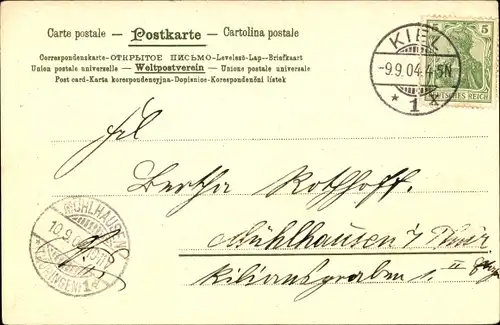 Carte postale — Postkarte — Cartolina postale
Correspondenzkarte-ОТКРЫТОЕ ПИСЬМО-Levelező-Lap-Briefkaart
Union postale universelle — Weltpostverein — Unione postale universale
Post card-Karta korespondencyjna-Dopisnice-Korespondenční lístek
KIEL
-9.9.04.4-5N
* 1 *
5 5
DEUTSCHES REICH
Frl
Bertha Rothhoff.
Mühlhausen i/ Thür
Kiliansgraben 1. II
MÜHLHAUSEN
10.9.04
(THÜRINGEN)
1